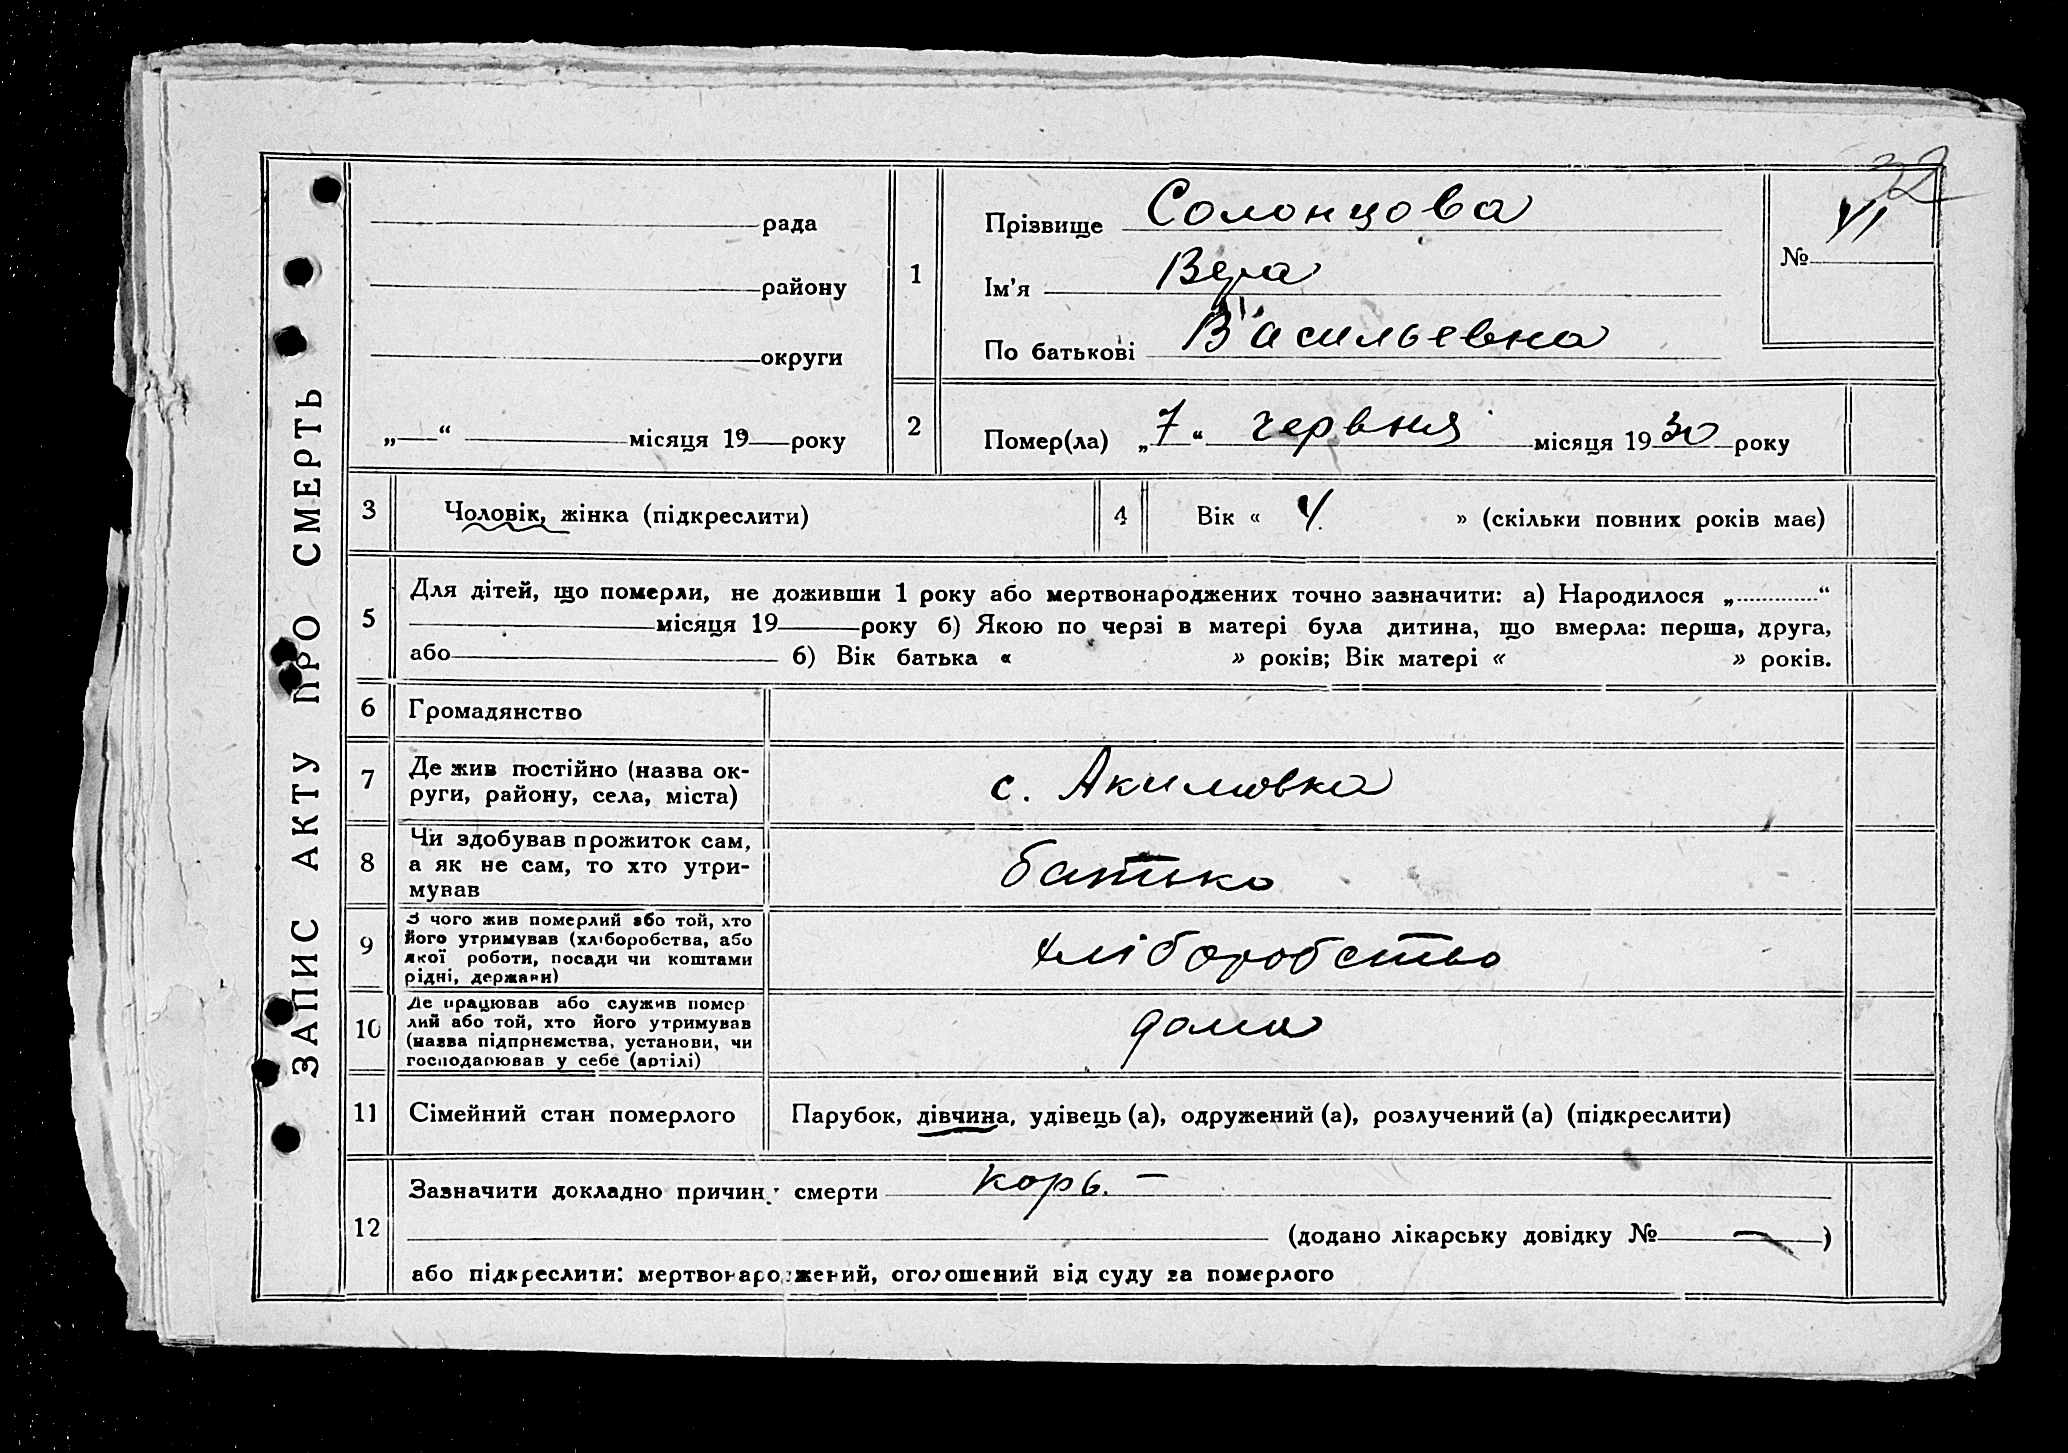 ЗАПИС АКТУ ПРО СМЕРТЬ
рада
району
округи
„—“ місяця 19 року
1
Прізвище Солонцова
Ім'я Вера
По батькові Васильевна
№ VI
32
2
Помер(ла) „7“ червня місяця 1930 року
3
Чоловік, жінка (підкреслити)
4
Вік « 4 » (скільки повних років має)
5
Для дітей, що померли, не доживши 1 року або мертвонароджених точно зазначити: а) Народилося „.............“
місяця 19 року б) Якою по черзі в матері була дитина, що вмерла: перша, друга,
або б) Вік батька « » років; Вік матері « » років.
6
Громадянство
7
Де жив постійно (назва ок-
руги, району, села, міста)
с. Акимовка
8
Чи здобував прожиток сам,
а як не сам, то хто утри-
мував
батько
9
З чого жив померлий або той, хто
його утримував (хліборобства, або
якої роботи, посади чи коштами
рідні, держави)
хліборобство
10
Де працював або служив помер
лий або той, хто його утримував
(назва підприємства, установи, чи
господарював у себе (артілі)
дома
11
Сімейний стан померлого
Парубок, дівчина, удівець (а), одружений (а), розлучений (а) (підкреслити)
12
Зазначити докладно причину смерти корь. —
(додано лікарську довідку № — )
або підкреслити: мертвонароджений, оголошений від суду за померлого